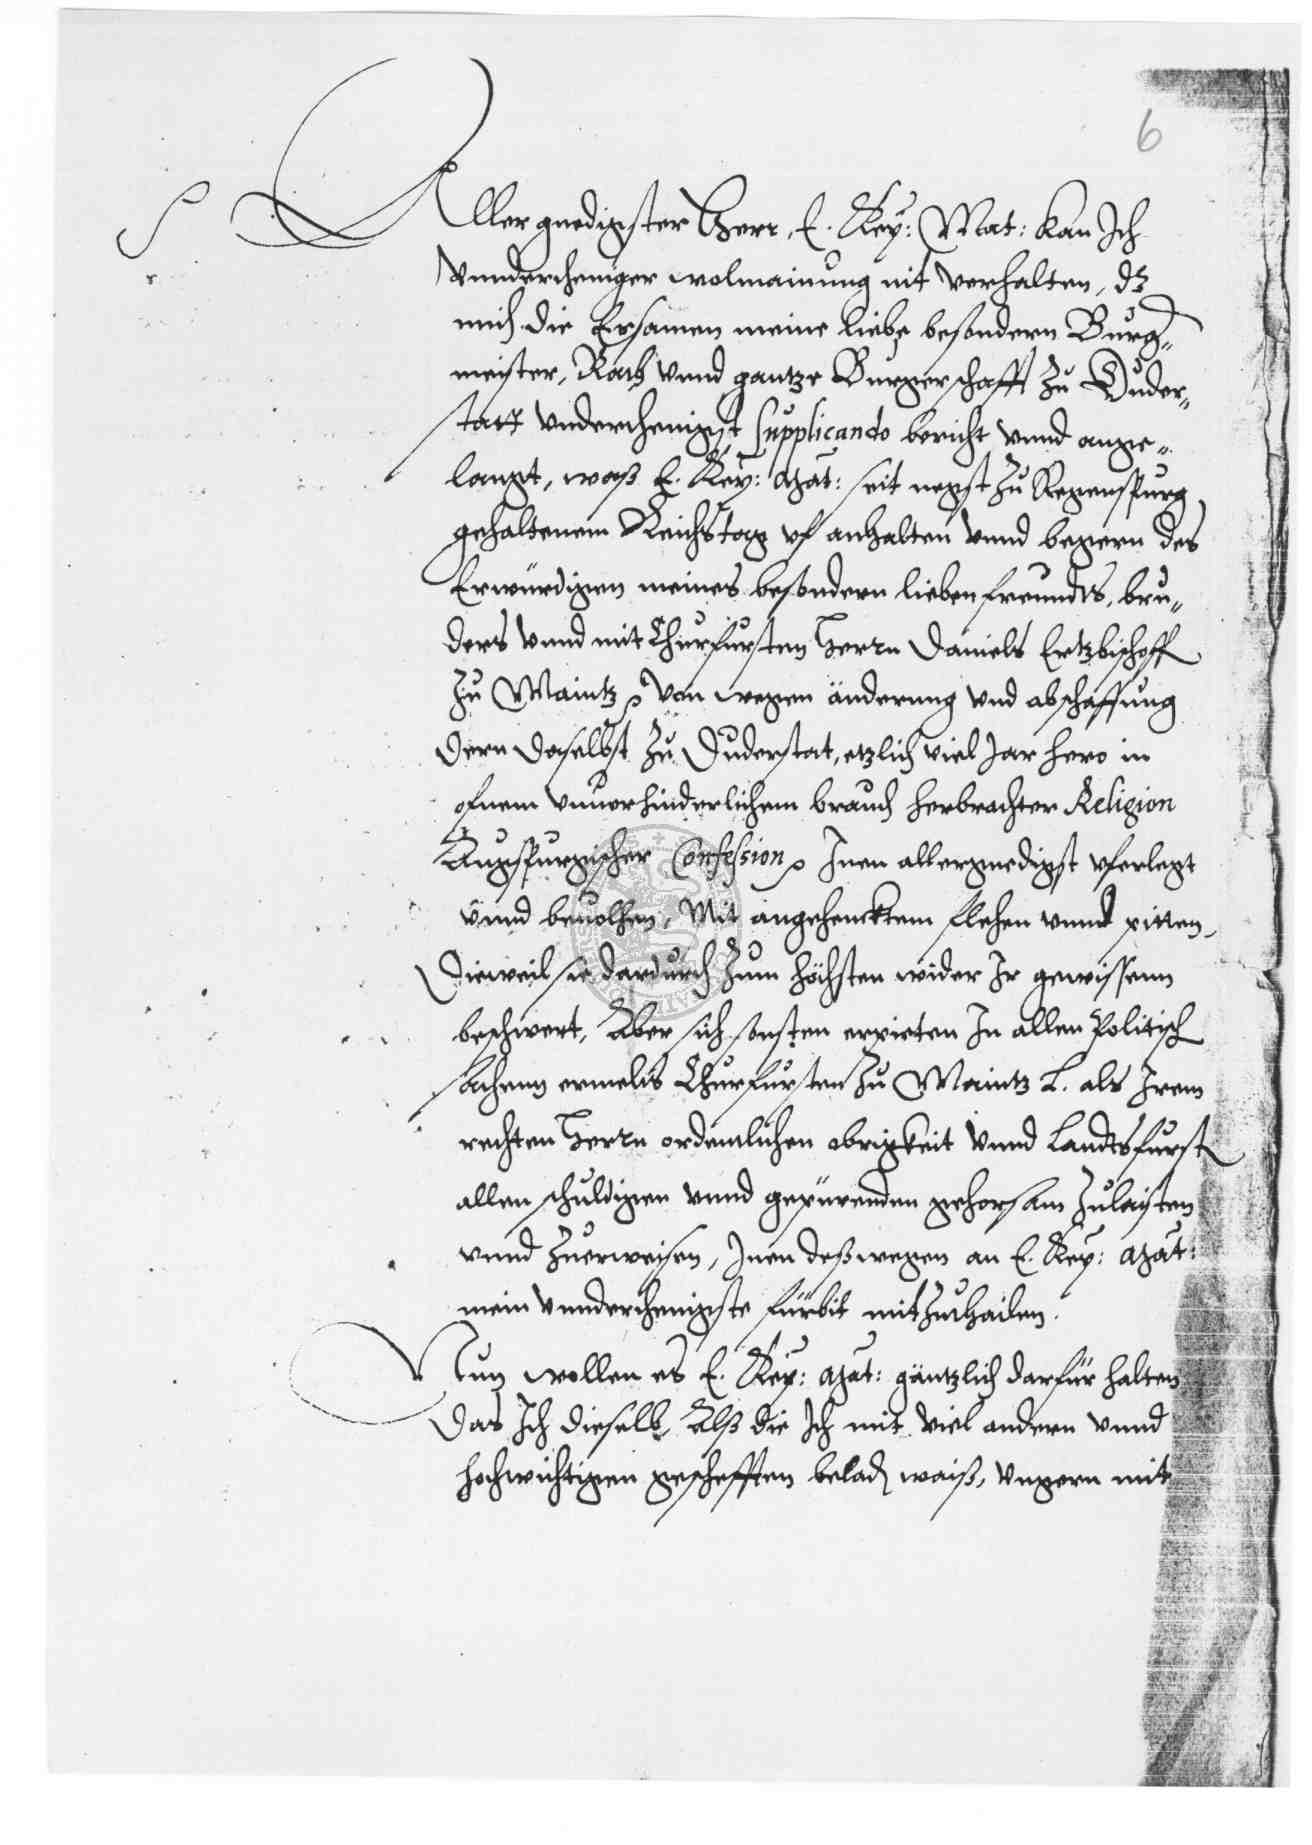 6
Aller gnedigster Herr, E. Key: Mat: kan Ich
vnndertheniger wolmainung nit verhalten, dz
mich die Ersamen meine liebe besondern Burg„
meister, Rath vnnd gantze Burgerschafft zu Duder„
statt vnderthenigst Supplicando bericht vnnd ange„
langt, waß E. Key: Mat: seit negst zu Regenspurg
gehaltenem Reichstag vf anhalten vnnd begern des
Erwürdigen meines besondern lieben freundts, bru„
ders vnnd mit Churfursten Herrn Daniels Ertzbischoff
zu Maintz von wegen änderung vnd abschaffung
dern daselbst zu Duderstat, etzlich viel Jar hero in
ofnem vnuorhinderlichem brauch herbrachter Religion
Augspurgischer Confession Inen allergnedigst vferlegt
vnnd beuolhen, Mit angehencktem flehen vnnd pitten,
Dieweil sie dardurch zum höchsten wider Ir gewissenn
beschwert, Aber sich sonsten erpieten In allen Politisch
sachenn ermelts Churfursten zu Maintz L. als Irem
rechten Herrn ordentlichen obrigkeit vnnd Landtsfurst
allen schuldigen vnnd gepürenden gehorsam zulaisten
vnnd zuerweisen, Inen deßwegen an E. Key: Mat:
mein vnnderthenigste fürbit mitzuthailen.
Nun wollen es E. Key: Mat: gäntzlich darfür halten
Das Ich dieselb, Alß die Ich mit viel andern vnnd
hochwichtigen geschefften beladen waiß, vngern mit